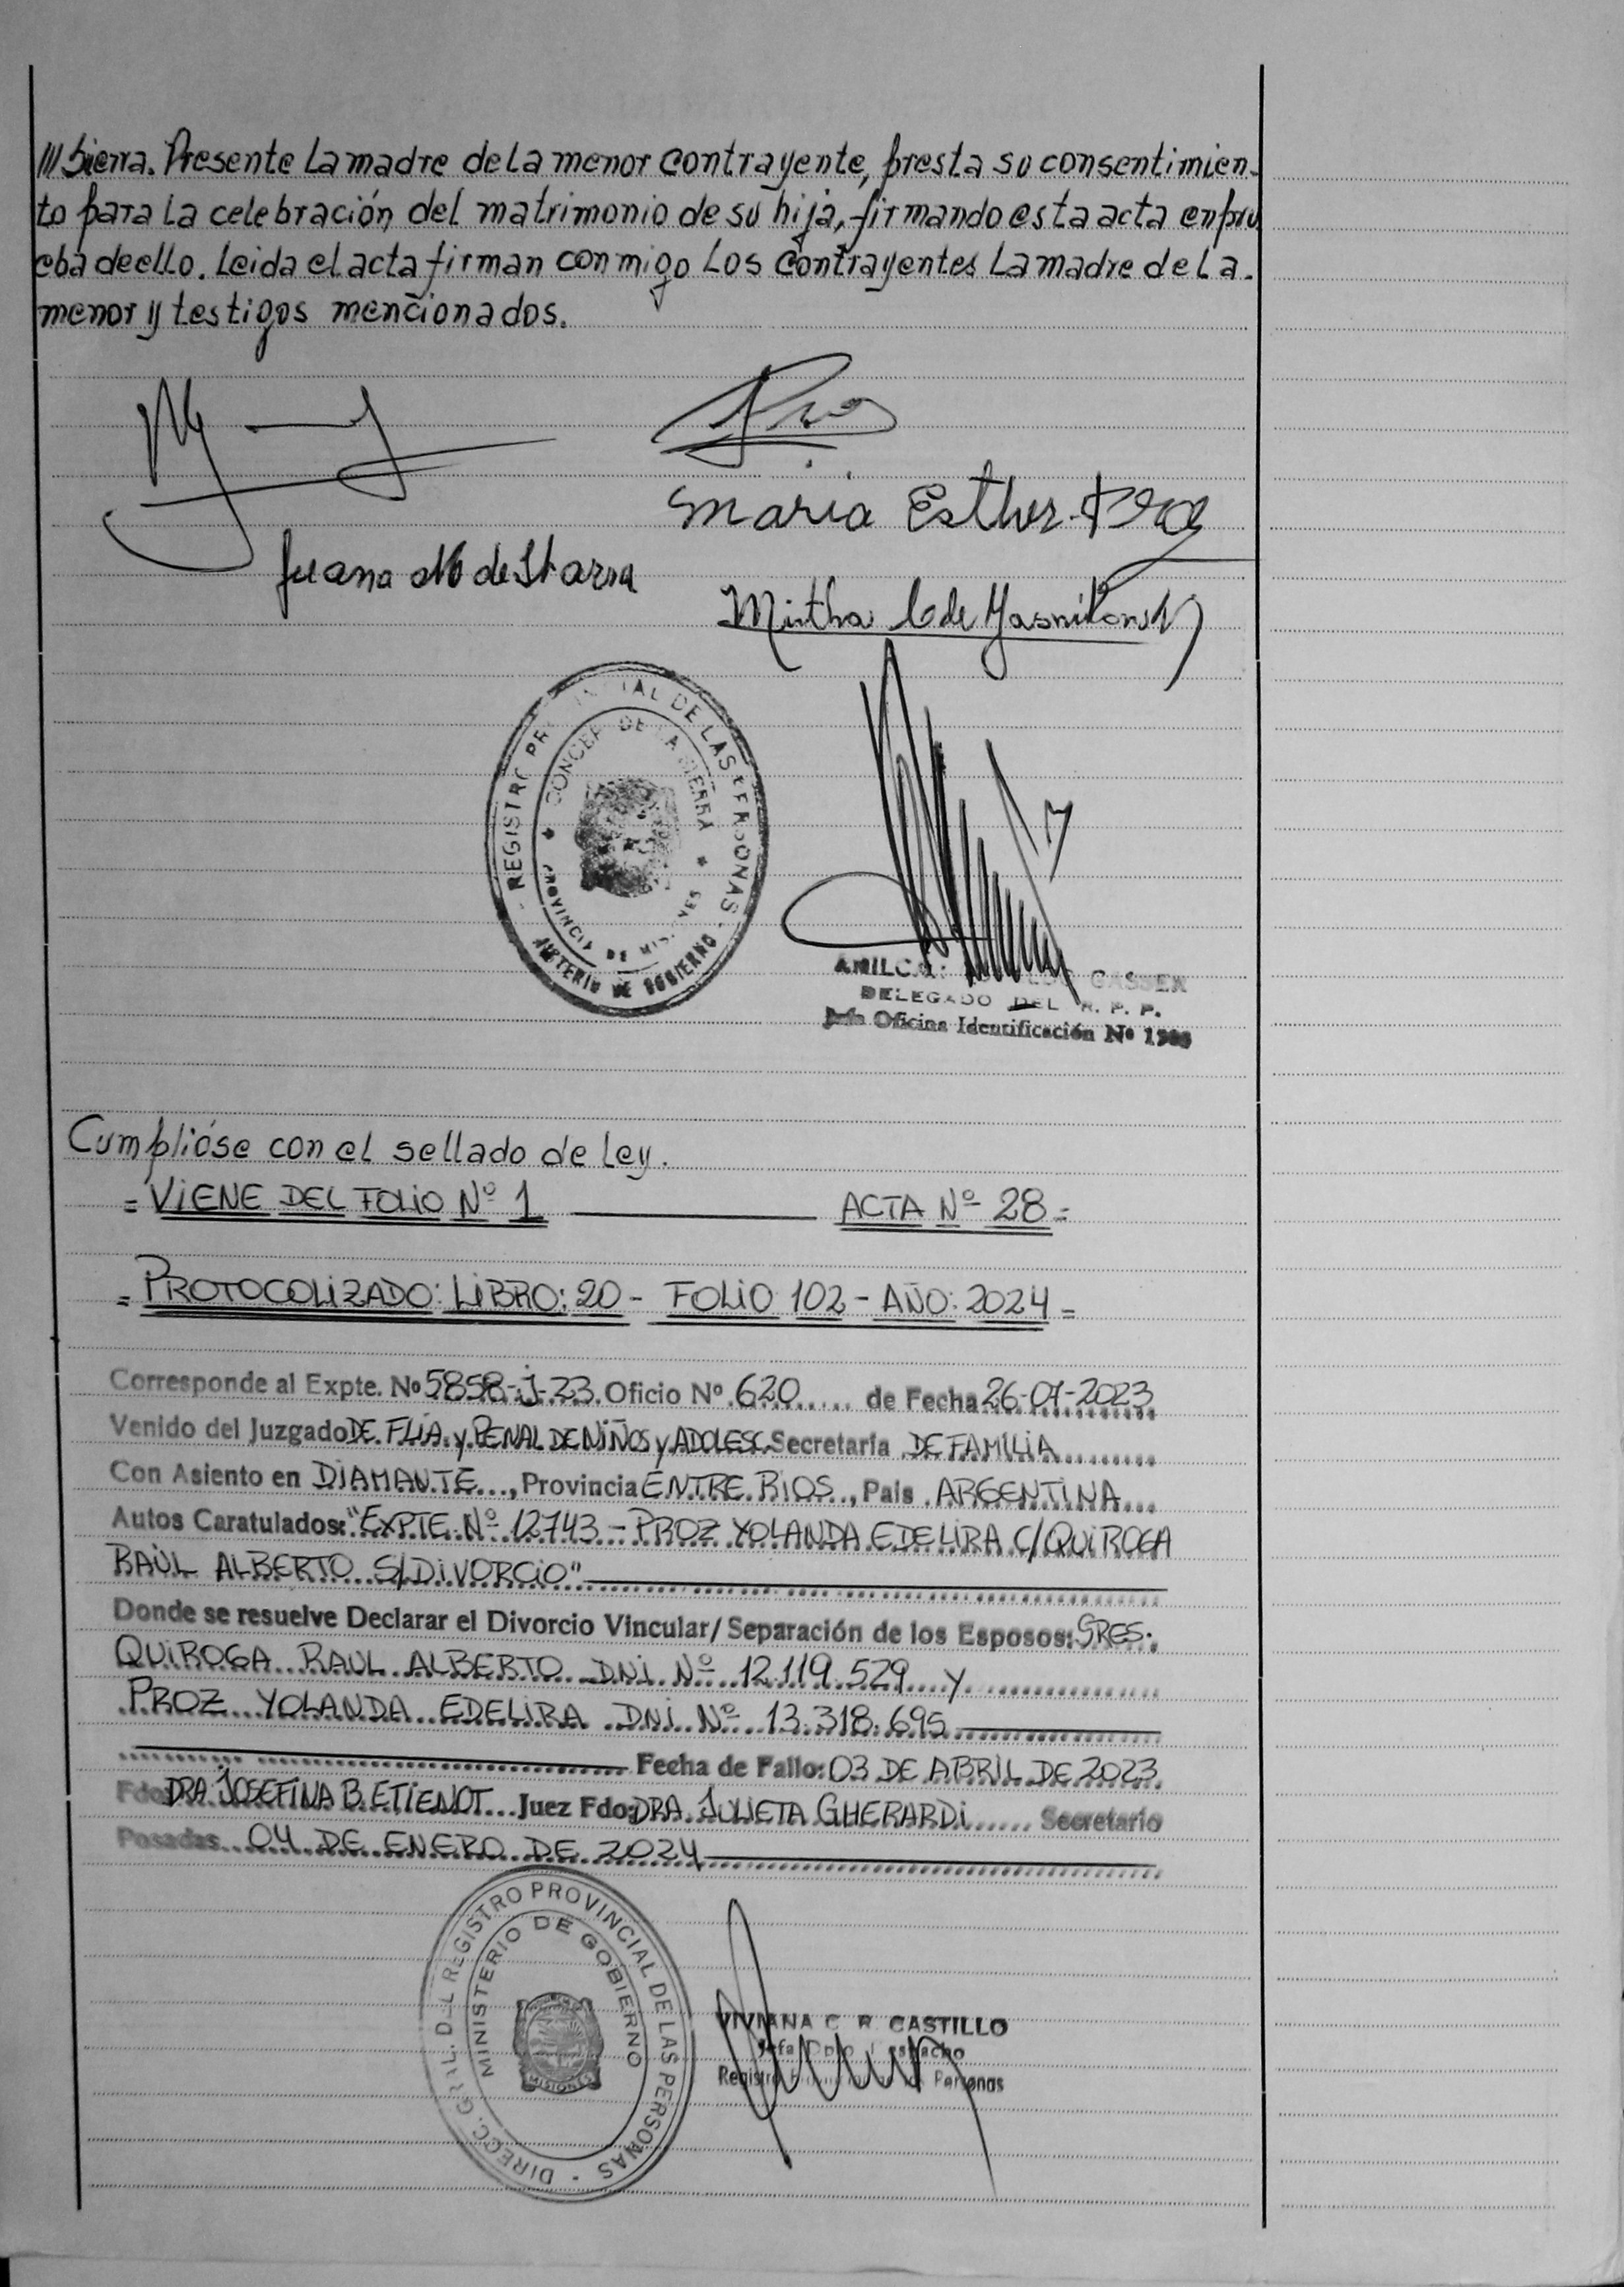 /// Sierra. Presente La madre de La menor contrayente, presta su consentimien-
to para La celebración del matrimonio de su hija, firmando esta acta en pru
eba de ello. Leida el acta firman conmigo Los Contrayentes La madre de La-
menor y testigos mencionados.
Maria Esther
Juana de
Mirtha de
REGISTRO PROVINCIAL DE LAS PERSONAS
CONCEP. DE LA SIERRA
PROVINCIA DE MISIONES
DE GOBIERNO
GASSEN
DELEGADO DEL R. P. P.
Jefe Oficina Identificación Nº
Cumplióse con el sellado de Ley.
= VIENE DEL FOLIO Nº 1 ACTA Nº 28 =
= PROTOCOLIZADO: LIBRO: 20 - FOLIO 102 - AÑO: 2024 =
Corresponde al Expte. Nº 5858-J-23. Oficio Nº 620 de Fecha 26-07-2023
Venido del Juzgado DE FLIA. y PENAL DE NIÑOS y ADOLESC. Secretaría DE FAMILIA
Con Asiento en DIAMANTE, Provincia ENTRE RIOS, Pais ARGENTINA
Autos Caratulados: "EXPTE. Nº 12743 - PROZ YOLANDA EDELIRA C/ QUIROGA
RAÚL ALBERTO S/DIVORCIO"
Donde se resuelve Declarar el Divorcio Vincular/Separación de los Esposos: SRES.
QUIROGA RAUL ALBERTO DNI. Nº 12.119.529 y
PROZ YOLANDA EDELIRA DNI Nº 13.318.695
Fecha de Fallo: 03 DE ABRIL DE 2023
Fdo: DRA JOSEFINA B. ETIENOT Juez Fdo: DRA. JULIETA GHERARDI Secretario
Posadas 04 DE ENERO DE 2024
DIRECC. GRAL. DEL REGISTRO PROVINCIAL DE LAS PERSONAS
MINISTERIO DE GOBIERNO
MISIONES
VIVIANA C. R. CASTILLO
Jefa Dpto. Despacho
Registro Personas